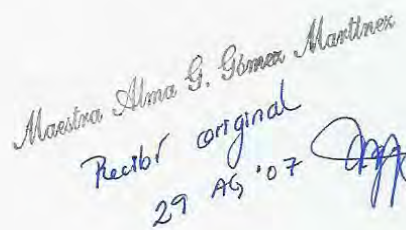 Maestra Alma G. Gómez Martínez
Recibí original
29 AG '07